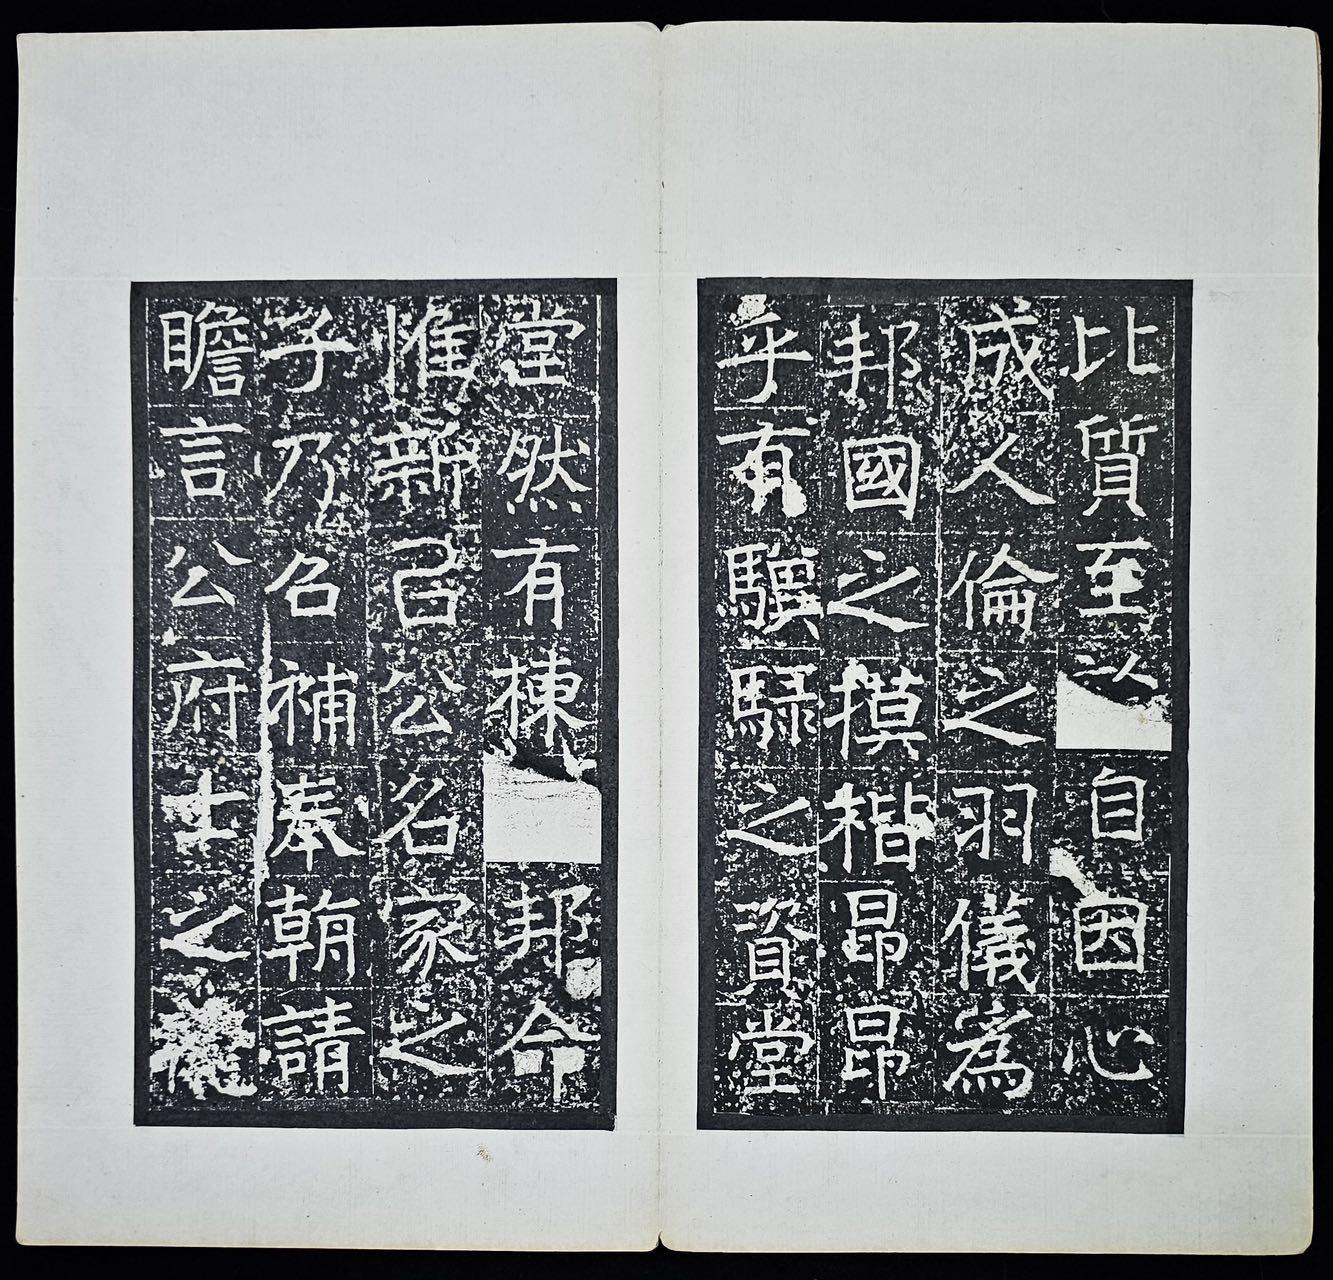 比質至以自因心
成人倫之羽儀為
邦國之摸楷昂昂
乎有驥騄之資堂
堂然有棟邦命
惟新以公名家之
子乃召補奉朝請
瞻言公府士之